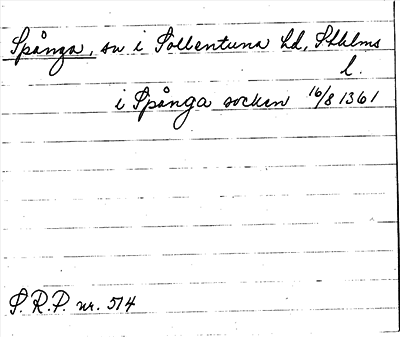 Spånga, sn i Sollentuna hd, Sthlms
l.
i Spånga socken 16/8 1361
S.R.P. nr. 514